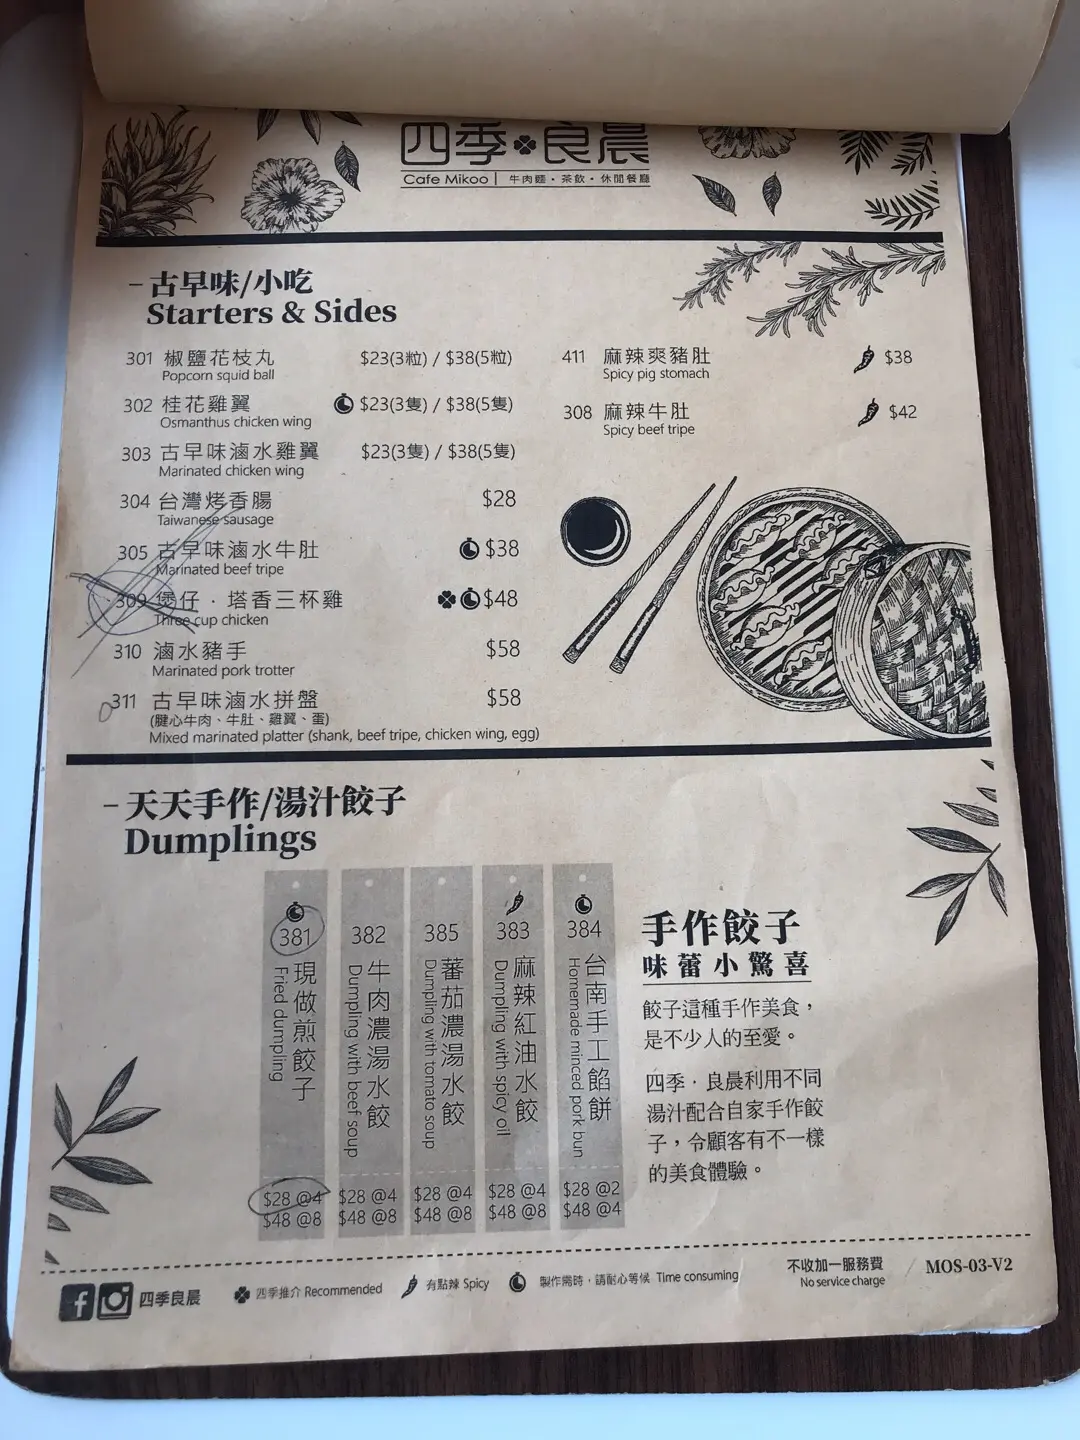 四季良晨
Cafe Mikoo | 牛肉麵・茶飲・休閒餐廳
–古早味/小吃
Starters & Sides
301 椒鹽花枝丸 $23(3粒) / $38(5粒)
Popcorn squid ball
302 桂花雞翼 $23(3隻) / $38(5隻)
Osmanthus chicken wing
303 古早味滷水雞翼 $23(3隻) / $38(5隻)
Marinated chicken wing
304 台灣烤香腸 $28
Taiwanese sausage
305 古早味滷水牛肚 $38
Marinated beef tripe
309 煲仔・塔香三杯雞 $48
Three cup chicken
310 滷水豬手 $58
Marinated pork trotter
311 古早味滷水拼盤 $58
(腱心牛肉、牛肚、雞翼、蛋)
Mixed marinated platter (shank, beef tripe, chicken wing, egg)
411 麻辣爽豬肚 $38
Spicy pig stomach
308 麻辣牛肚 $42
Spicy beef tripe
–天天手作/湯汁餃子
Dumplings
381
現做煎餃子
Fried dumpling
$28 @4
$48 @8
382
牛肉濃湯水餃
Dumpling with beef soup
$28 @4
$48 @8
385
蕃茄濃湯水餃
Dumpling with tomato soup
$28 @4
$48 @8
383
麻辣紅油水餃
Dumpling with spicy oil
$28 @4
$48 @8
384
台南手工餡餅
Homemade minced pork bun
$28 @2
$48 @4
手作餃子
味蕾小驚喜
餃子這種手作美食，
是不少人的至愛。
四季・良晨利用不同
湯汁配合自家手作餃
子，令顧客有不一樣
的美食體驗。
四季良晨
四季推介 Recommended
有點辣 Spicy
製作需時，請耐心等候 Time consuming
不收加一服務費
No service charge
/ MOS-03-V2